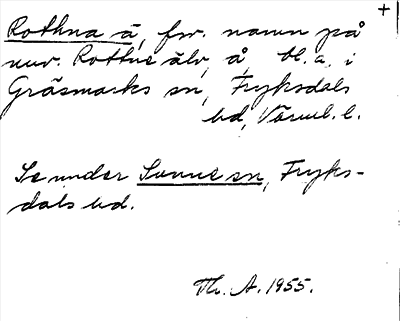 +
Rothna å, fsv. namn på
nuv. Rottne älv, å, bl.a. i
Gräsmarks sn, Fryksdals
hd, Värml. l.
Se under Sunne sn, Fryks-
dals hd.
Th. A. 1955.